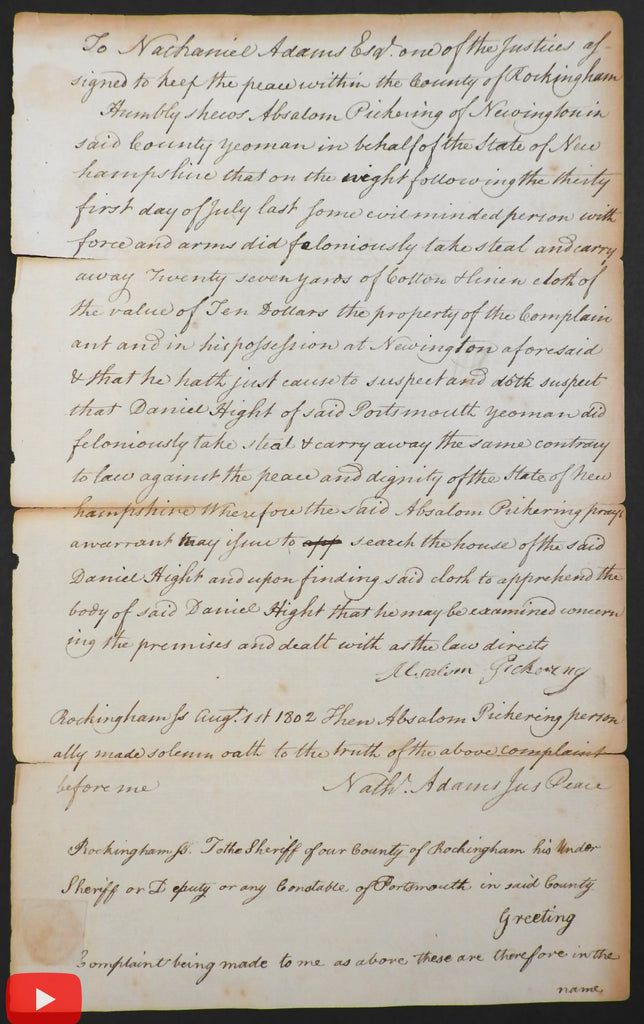 To Nathaniel Adams Esqr. one of the Justices as-
signed to keep the peace within the County of Rockingham
Humbly shews Absalom Pickering of Newington in
said County Yeoman in behalf of the State of New
hampshire that on the night following the thirty
first day of July last some evil minded person with
force and arms did feloniously take steal and carry
away Twenty seven yards of Cotton & linen cloth of
the value of Ten Dollars the property of the Complain
ant and in his possession at Newington aforesaid
& that he hath just cause to suspect and doth suspect
that Daniel Hight of said Portsmouth Yeoman did
feloniously take steal & carry away the same contrary
to law against the peace and dignity of the State of New
hampshire Wherefore the said Absalom Pickering prays
a warrant may issue to app search the house of the said
Daniel Hight and upon finding said cloth to apprehend the
body of said Daniel Hight that he may be examined concern
ing the premises and dealt with as the law directs
Absalom Pickering
Rockingham Ss Augt. 1st 1802 Then Absalom Pickering person
ally made solemn oath to the truth of the above complaint
before me Nathl. Adams Jus Peace
Rockingham Ss. To the Sheriff of our County of Rockingham his Under
Sheriff or Deputy or any Constable of Portsmouth in said County
Greeting
Complaint being made to me as above these are therefore in the
name